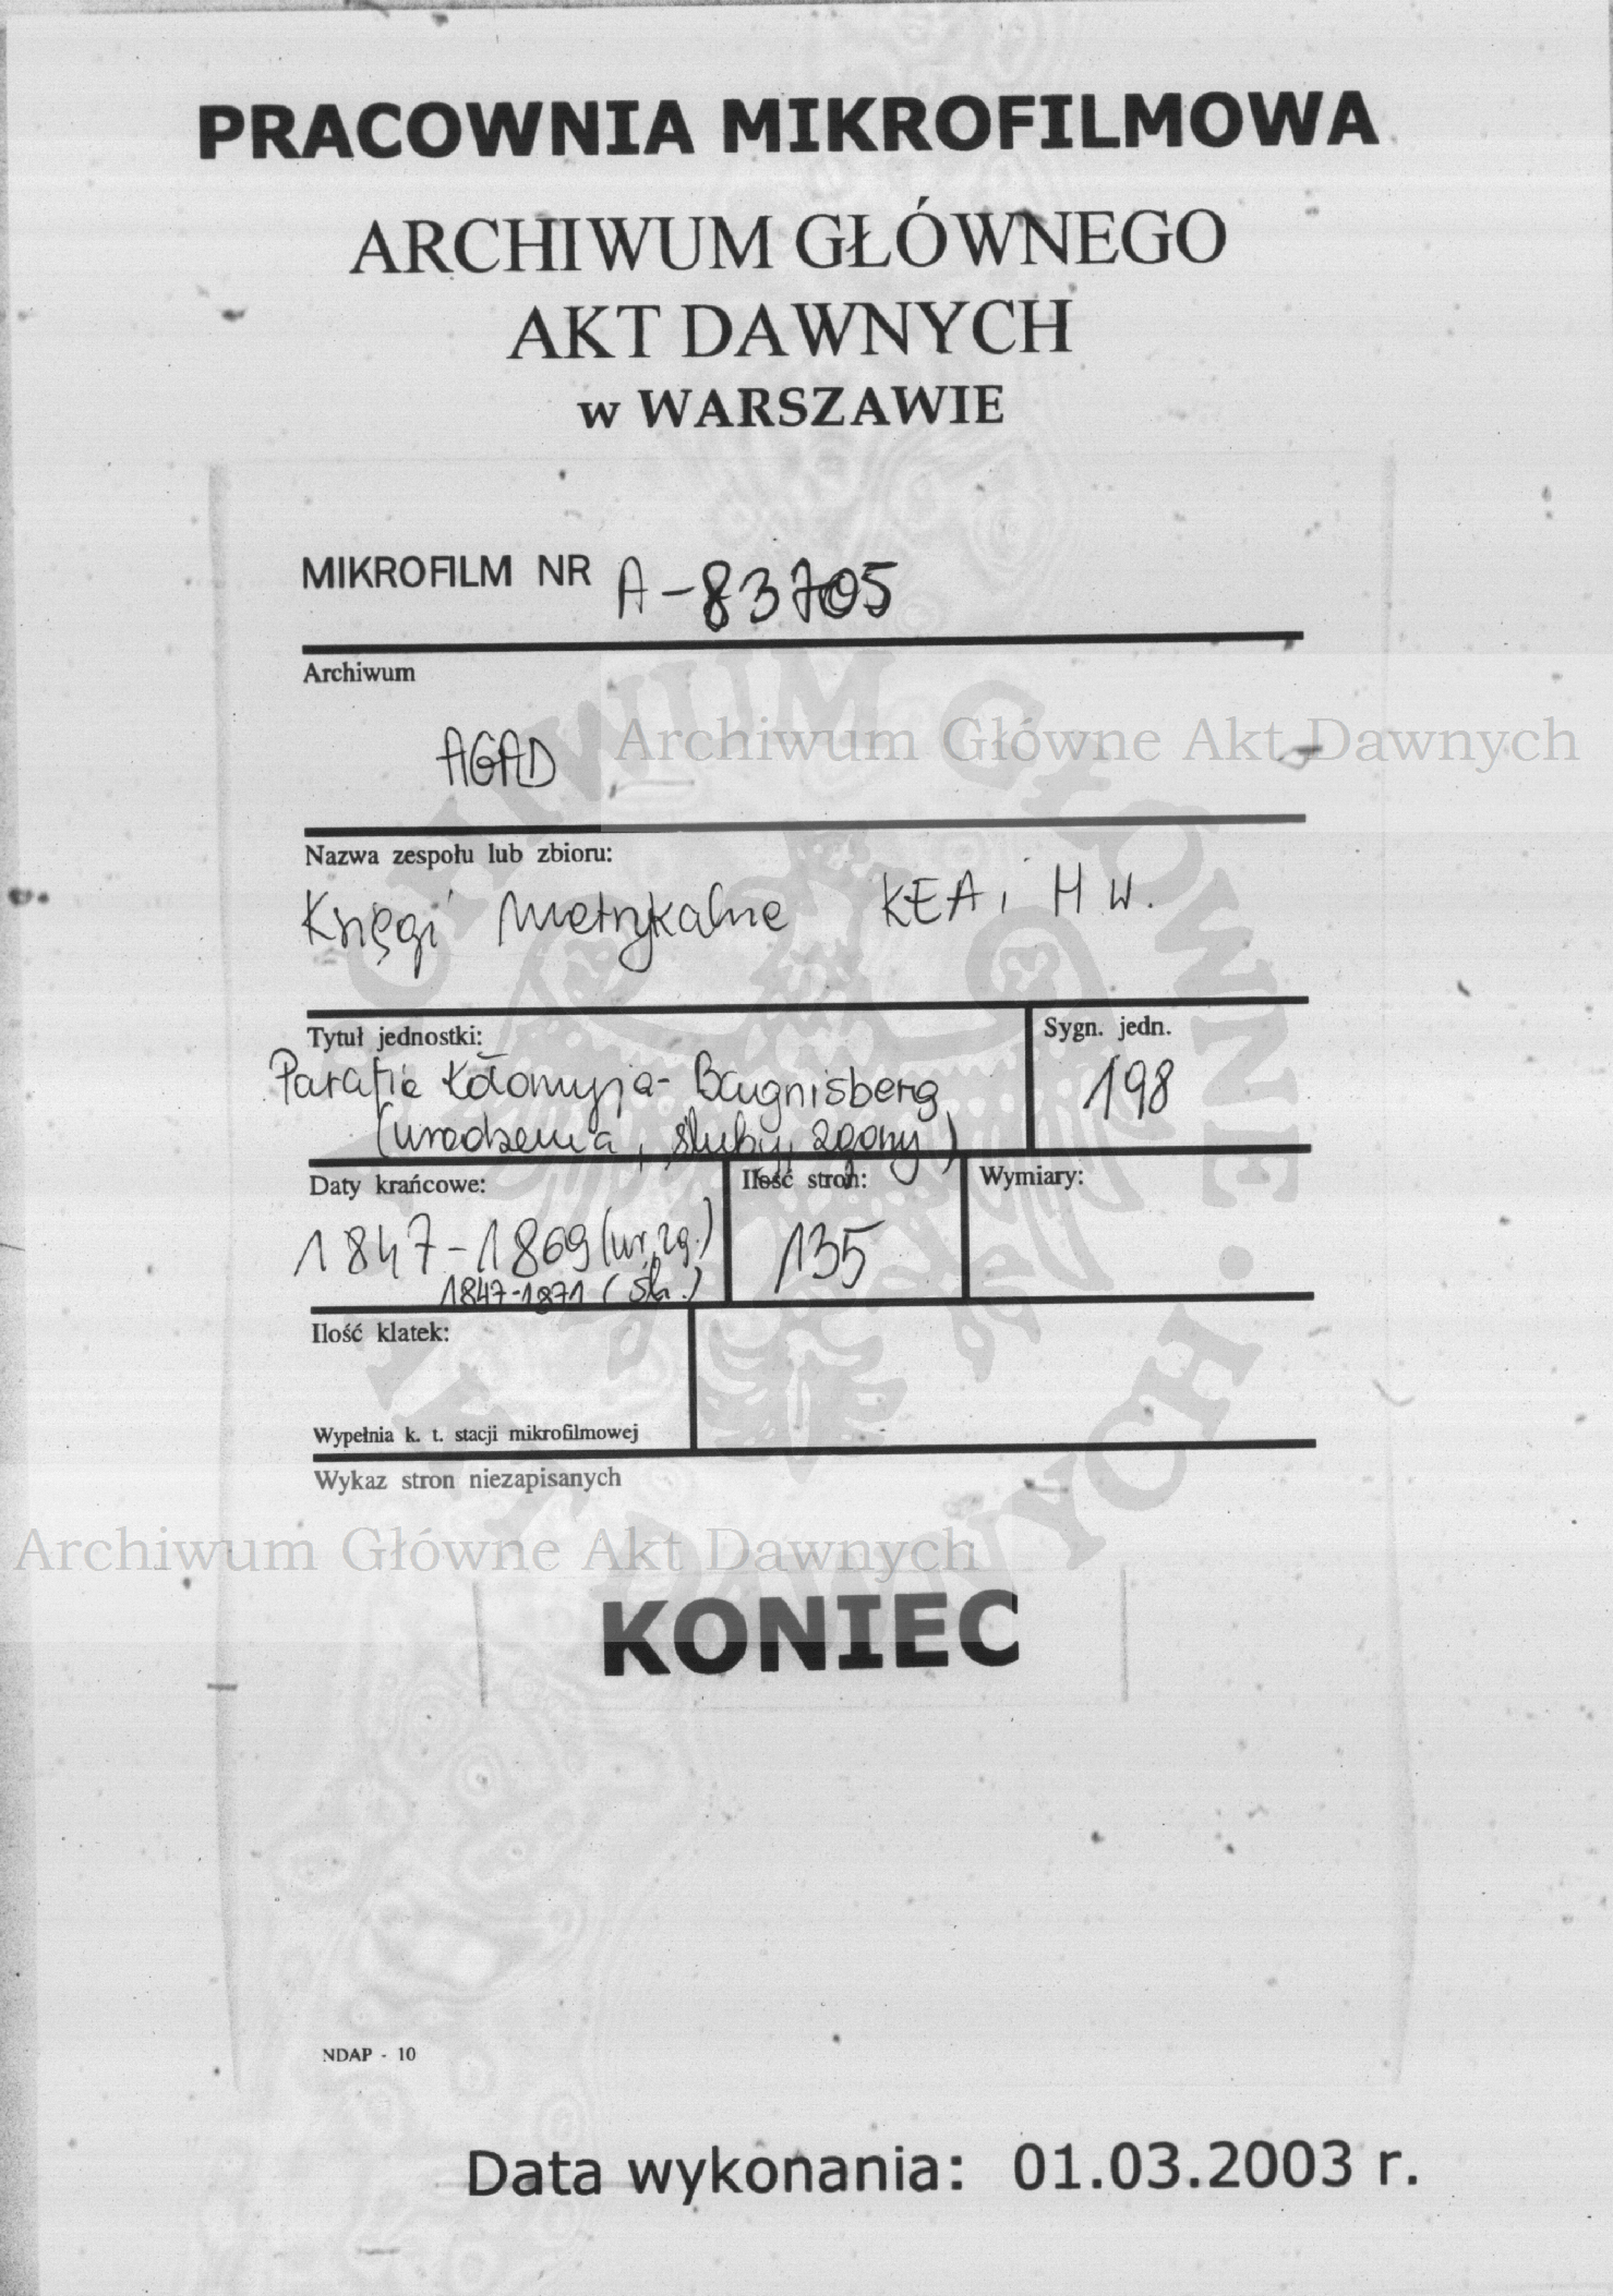 PRACOWNIA MIKROFILMOWA
ARCHIWUM GŁÓWNEGO
AKT DAWNYCH
w WARSZAWIE
MIKROFILM NR A-83705
Archiwum
AGAD
Archiwum Główne Akt Dawnych
Nazwa zespołu lub zbioru:
Księgi Metrykalne KEA i H W.
Tytuł jednostki:
Parafia Kołomyja- Baugnisberg
(urodzenia, śluby, zgony)
Sygn. jedn.
198
Daty krańcowe:
1847-1869 (ur, zg.)
1847-1871 (śl.)
Ilość stron:
135
Wymiary:
Ilość klatek:
Wypełnia k. t. stacji mikrofilmowej
Wykaz stron niezapisanych
Archiwum Główne Akt Dawnych
KONIEC
NDAP - 10
Data wykonania: 01.03.2003 r.